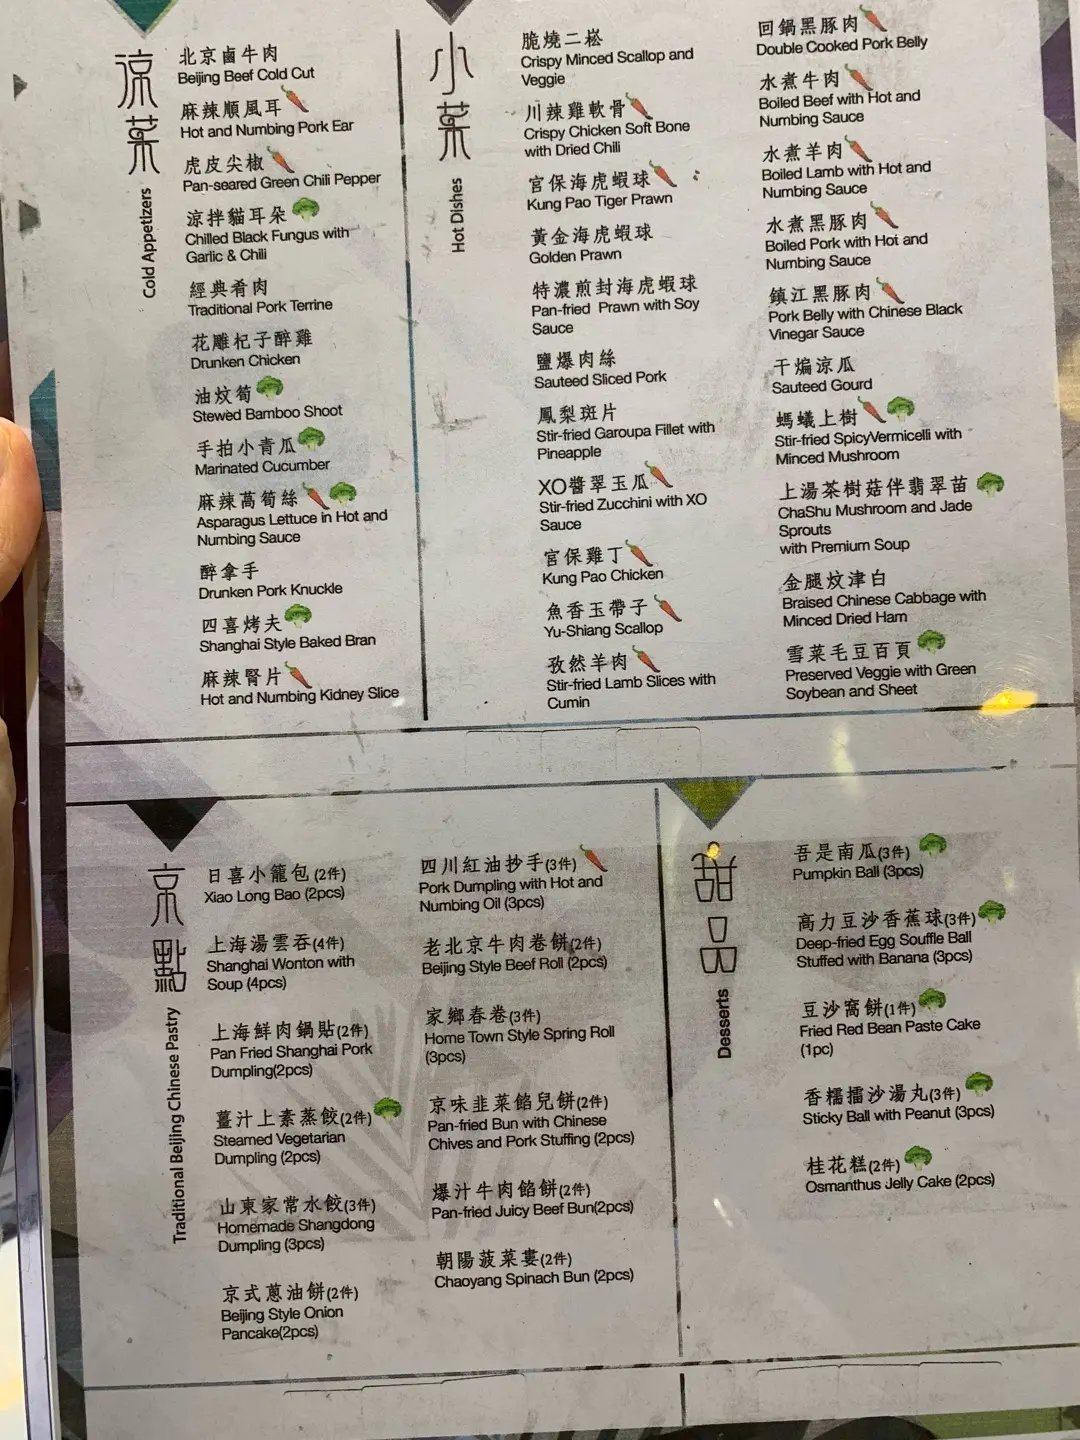 涼菜
Cold Appetizers
北京鹵牛肉
Beijing Beef Cold Cut
麻辣順風耳
Hot and Numbing Pork Ear
虎皮尖椒
Pan-seared Green Chili Pepper
涼拌貓耳朵
Chilled Black Fungus with
Garlic & Chili
經典肴肉
Traditional Pork Terrine
花雕杞子醉雞
Drunken Chicken
油炆筍
Stewed Bamboo Shoot
手拍小青瓜
Marinated Cucumber
麻辣萵筍絲
Asparagus Lettuce in Hot and
Numbing Sauce
醉拿手
Drunken Pork Knuckle
四喜烤夫
Shanghai Style Baked Bran
麻辣腎片
Hot and Numbing Kidney Slice
小菜
Hot Dishes
脆燒二崧
Crispy Minced Scallop and
Veggie
川辣雞軟骨
Crispy Chicken Soft Bone
with Dried Chili
宮保海虎蝦球
Kung Pao Tiger Prawn
黃金海虎蝦球
Golden Prawn
特濃煎封海虎蝦球
Pan-fried Prawn with Soy
Sauce
鹽爆肉絲
Sauteed Sliced Pork
鳳梨斑片
Stir-fried Garoupa Fillet with
Pineapple
XO醬翠玉瓜
Stir-fried Zucchini with XO
Sauce
宮保雞丁
Kung Pao Chicken
魚香玉帶子
Yu-Shiang Scallop
孜然羊肉
Stir-fried Lamb Slices with
Cumin
回鍋黑豚肉
Double Cooked Pork Belly
水煮牛肉
Boiled Beef with Hot and
Numbing Sauce
水煮羊肉
Boiled Lamb with Hot and
Numbing Sauce
水煮黑豚肉
Boiled Pork with Hot and
Numbing Sauce
鎮江黑豚肉
Pork Belly with Chinese Black
Vinegar Sauce
干煸涼瓜
Sauteed Gourd
螞蟻上樹
Stir-fried SpicyVermicelli with
Minced Mushroom
上湯茶樹菇伴翡翠苗
ChaShu Mushroom and Jade
Sprouts
with Premium Soup
金腿炆津白
Braised Chinese Cabbage with
Minced Dried Ham
雪菜毛豆百頁
Preserved Veggie with Green
Soybean and Sheet
京點
Traditional Beijing Chinese Pastry
日喜小籠包(2件)
Xiao Long Bao (2pcs)
上海湯雲吞(4件)
Shanghai Wonton with
Soup (4pcs)
上海鮮肉鍋貼(2件)
Pan Fried Shanghai Pork
Dumpling(2pcs)
薑汁上素蒸餃(2件)
Steamed Vegetarian
Dumpling (2pcs)
山東家常水餃(3件)
Homemade Shangdong
Dumpling (3pcs)
京式蔥油餅(2件)
Beijing Style Onion
Pancake(2pcs)
四川紅油抄手(3件)
Pork Dumpling with Hot and
Numbing Oil (3pcs)
老北京牛肉卷餅(2件)
Beijing Style Beef Roll (2pcs)
家鄉春卷(3件)
Home Town Style Spring Roll
(3pcs)
京味韭菜餡兒餅(2件)
Pan-fried Bun with Chinese
Chives and Pork Stuffing (2pcs)
爆汁牛肉餡餅(2件)
Pan-fried Juicy Beef Bun(2pcs)
朝陽菠菜婁(2件)
Chaoyang Spinach Bun (2pcs)
甜品
Desserts
吾是南瓜(3件)
Pumpkin Ball (3pcs)
高力豆沙香蕉球(3件)
Deep-fried Egg Souffle Ball
Stuffed with Banana (3pcs)
豆沙窩餅(1件)
Fried Red Bean Paste Cake
(1pc)
香糯擂沙湯丸(3件)
Sticky Ball with Peanut (3pcs)
桂花糕(2件)
Osmanthus Jelly Cake (2pcs)